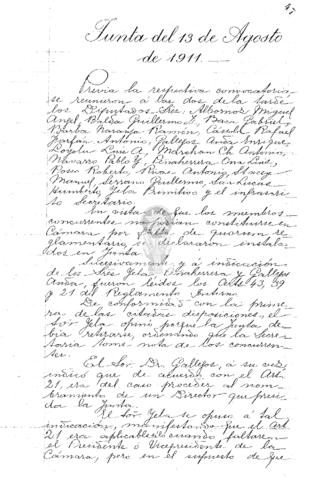 47
Junta del 13 de Agosto
de 1911.
Previa la respectiva convocatoria,
se reunieron á las dos de la tarde
los Diputados Sres. Albornoz Miguel
Angel, Balda Guillermo J, Baca Gabriel,
Barba Naranjo Ramón, Cassola Rafael
Antonio, Gallegos Anda Enrique,
Loyola Luis A, Madriñan Ch. Antonio,
Navarro Pablo I, Peñaherrera
Posso Roberto, Rivas Antonio, Stacey
Manuel, Serrano Guillermo,
Humberto, Yela Primitivo y el infrascrito
Secretario.
En vista de que los miembros
concurrentes no podían constituirse en
Cámara por falta de quorum re-
glamentario, se declararon instala-
dos en Junta.
Sucesivamente y á indicación
de los Sres. Yela, Peñaherrera y Gallegos
Anda, fueron leídos los Arts. 43, 39
y 21 del Reglamento Interno.
De conformidad con la prime-
ra de las citadas disposiciones, el
Sor. Yela opinó porque la Junta de-
bía retirarse, pidiendo que la Secre-
taría tome nota de los concurren-
tes.
El Sor. Dr. Gallegos, á su vez,
indicó que de acuerdo con el Art.
21, era del caso proceder al nom-
bramiento de un Director que presi-
da la Junta.
El Sor. Yela se opuso á tal
indicación, manifestando que el Art.
21 era aplicable cuando faltaren
el Presidente ó Vicepresidente de la
Cámara, pero en el supuesto de que